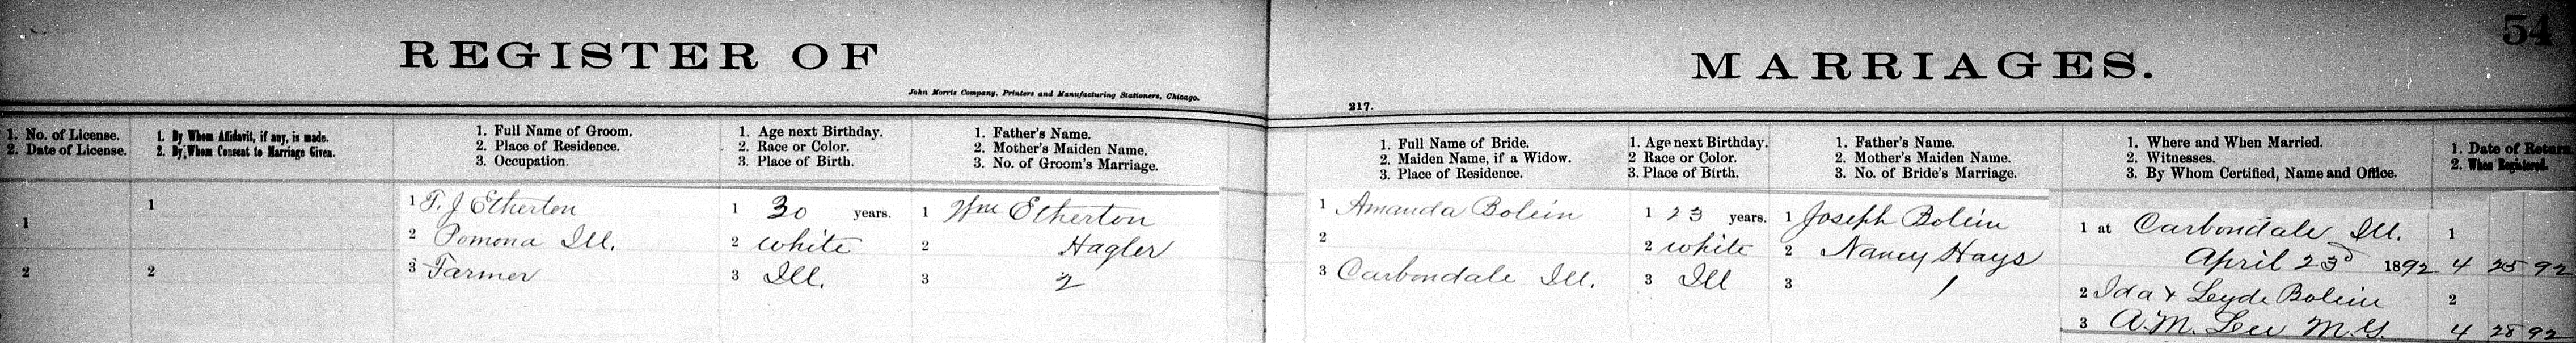 54
REGISTER OF MARRIAGES.
John Morris Company, Printers and Manufacturing Stationers, Chicago.
217.
1. No. of License.
2. Date of License.
1. By Whom Affidavit, if any, is made.
2. By Whom Consent to Marriage Given.
1. Full Name of Groom.
2. Place of Residence.
3. Occupation.
1. Age next Birthday.
2. Race or Color.
3. Place of Birth.
1. Father's Name.
2. Mother's Maiden Name.
3. No. of Groom's Marriage.
1. Full Name of Bride.
2. Maiden Name, if a Widow.
3. Place of Residence.
1. Age next Birthday.
2 Race or Color.
3. Place of Birth.
1. Father's Name.
2. Mother's Maiden Name.
3. No. of Bride's Marriage.
1. Where and When Married.
2. Witnesses.
3. By Whom Certified, Name and Office.
1. Date of Return.
2. When Registered.
1
2
1
2
1 T. J Etherton
2 Pomona Ill.
3 Farmer
1 30 years.
2 white
3 Ill.
1 Wm Etherton
2 Hagler
3 2
1 Amanda Bolein
2
3 Carbondale Ill.
1 23 years.
2 white
3 Ill
1 Joseph Bolein
2 Nancy Hays
3 1
1 at Carbondale Ill.
April 23d 1892
2 Ida & Leyde Bolein
3 A. M. Lee M.G.
1
4 25 92
2
4 28 92